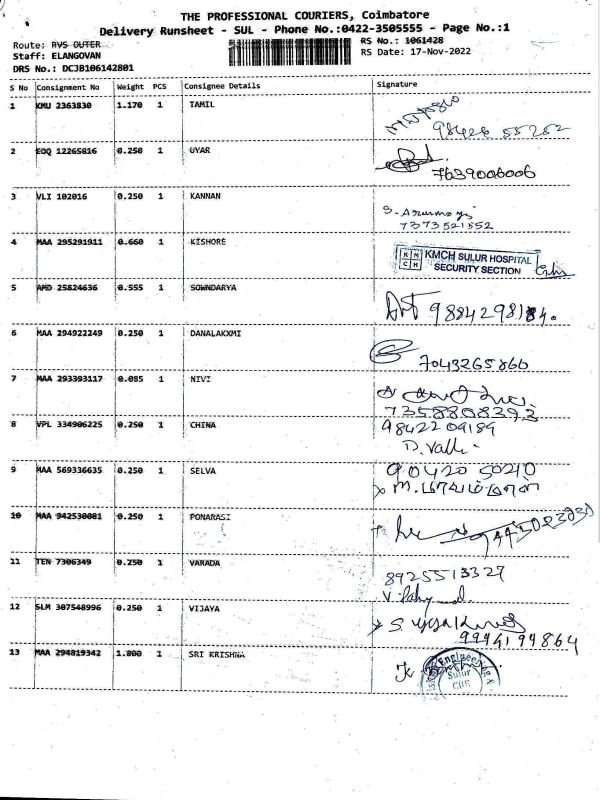 THE PROFESSIONAL COURIERS, Coimbatore
Delivery Runsheet - SUL - Phone No.:0422-3505555 - Page No.:1
Route: RVS OUTER
RS No.: 1061428
Staff: ELANGOVAN
RS Date: 17-Nov-2022
DRS No.: DCJB106142801
S No Consignment No Weight PCS Consignee Details Signature
1 KMU 2363830 1.170 1 TAMIL
98426 55252
2 EOQ 12265816 0.250 1 UYAR
7639006006
3 VLI 102016 0.250 1 KANNAN
7373521552
4 MAA 295291911 0.660 1 KISHORE
KMCH SULUR HOSPITAL
SECURITY SECTION
5 AMD 25824636 0.555 1 SOWNDARYA
6 MAA 294922249 0.250 1 DANALAKXMI
7043265860
7 MAA 293393117 0.085 1 NIVI
7358808393
8 VPL 334906225 0.250 1 CHINA
9842209189
D. Valli
9 MAA 569336635 0.250 1 SELVA
90420 50210
10 MAA 942530081 0.250 1 PONARASI
11 TEN 7306349 0.250 1 VARADA
8925513327
12 SLM 307548996 0.250 1 VIJAYA
9994199864
13 MAA 294819342 1.800 1 SRI KRISHNA
Engineering &
Sulur
CBE